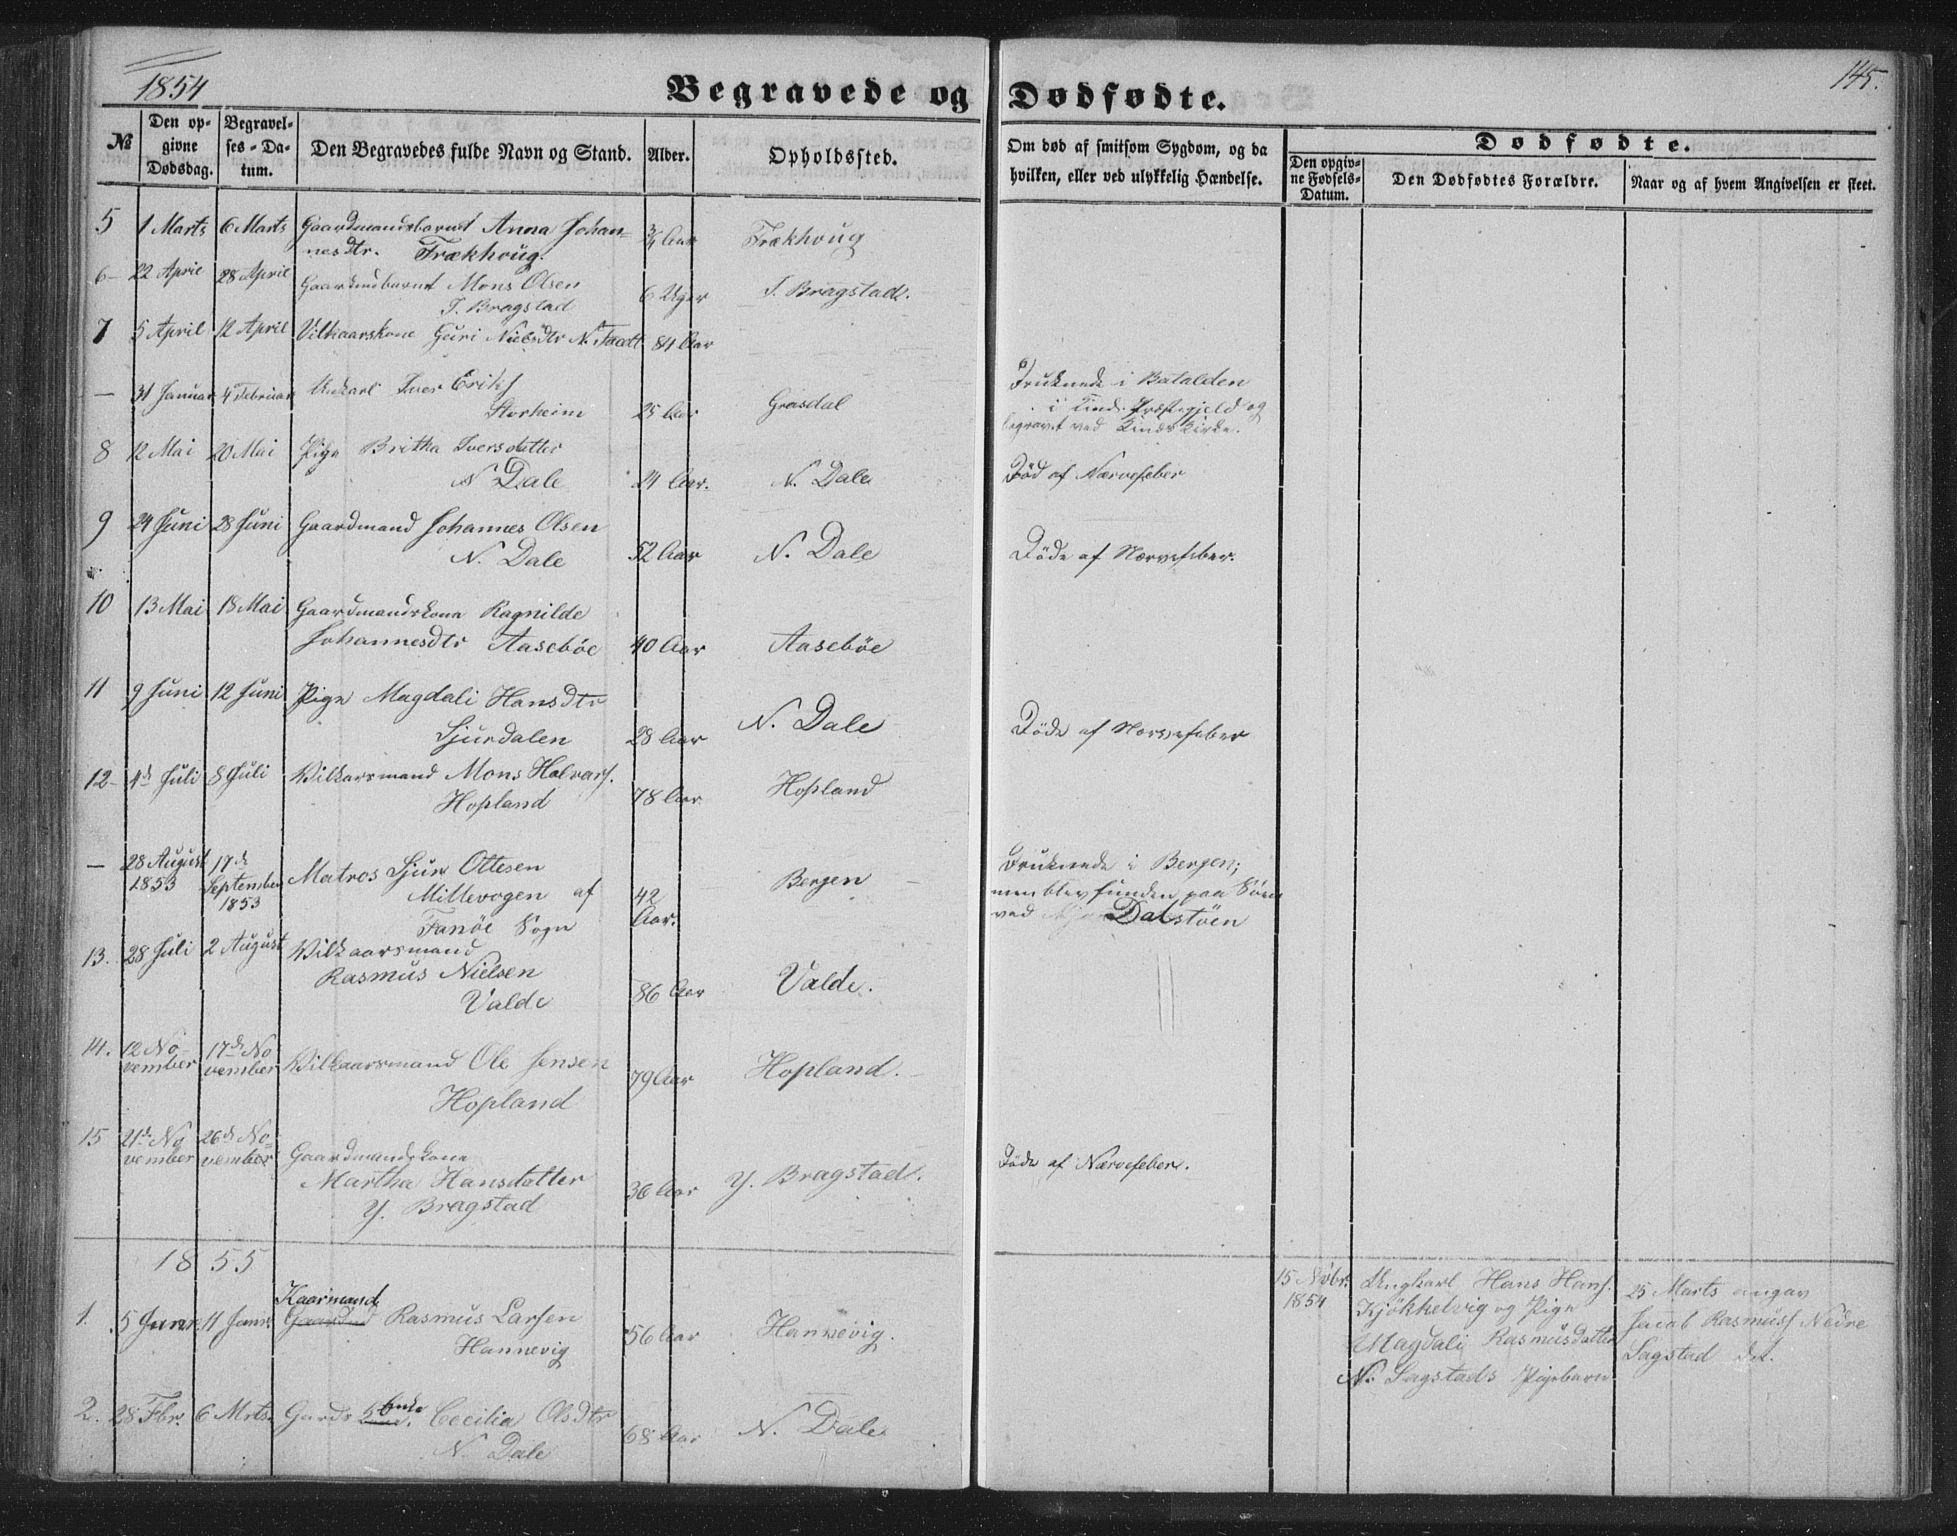 1854
145.
Begravede og Dødfødte.
№
Den opgivne Dødsdag.
Begravelses-Datum.
Den Begravedes fulde Navn og Stand.
Alder.
Opholdssted.
Om død af smitsom Sygdom, og da hvilken, eller ved ulykkelig Hændelse.
Dødfødte.
Den opgivne Fødsels-Datum.
Den Dødfødtes Forældre.
Naar og af hvem Angivelsen er skeet.
5 1 Marts 6 Marts Gaardmandsbarnet Anna Johan-
nesdtr. Frækhoug. ¾ Aar Frækhoug
6 22 April 28 April Gaardmdbarnet Mons Olsen
Bragstad 6 Uger Bragstad.
7 5 April 12 April Vilkaarskone Guri Nielsdtr N. 84 Aar
— 31 Januar 4 Februar Unkarl Iver Eriks
Storheim 25 Aar Grøsdal
Druknede i Batalden
i Kinds Præstegjeld og
begravet ved Kinds Kirke.
8 12 Mai 20 Mai Pige Britha Iversdatter
N Dale 24 Aar. N. Dale Död af Nærvefeber
9 24 Juni 28 Juni Gaardmand Johannes Olsen
N. Dale 52 Aar N. Dale Döde af Nærvefeber.
10 13 Mai 18 Mai Gaardmandskona Ragnilde
Johannesdtr Aasebøe 40 Aar Aasebøe
11 9 Juni 12 Juni Pige Magdali Hansdtr
Sjurdalen 28 Aar N. Dale Döde af Nærvefeber
12 4de Juli 8 Juli Vilkaarsmand Mons Halvors.
Hopland 78 Aar Hopland
— 28 August 1853 17de September 1853 Matros Sjur Ottesen
Millevogen af
Fanöe Sogn 42 Aar. Bergen
Druknede i Bergen;
men blev funden paa Søen
ved Dalstöen
13. 28 Juli 2 August Vilkaarsmand
Rasmus Nielsen
Valde 86 Aar Valde.
14. 12 November 17de November Vilkaarsmand Ole Jensen
Hopland 79 Aar Hopland.
15 21de November 26de November Gaardmandskone
Martha Hansdatter
Y. Bragstad 36 Aar Y. Bragstad. Döde af Nærvefeber.
1855
1. 5 Januar 11 Januar. Kaarmand Rasmus Larsen
Hannevig 56 Aar Hannevig.
15 Nóbr. 1854
Ungkarl Hans Hans.
Kjøkkelvig og Pige
Magdali Rasmusdatter
N. Sagstads Pigebarn
25 Marts angav
Jacob Rasmuss Nedre
Sagstad det.
2. 28 Fbr. 6 Mrts. Gards Enke Cecilia Olsdtr
N. Dale 68 Aar N. Dale